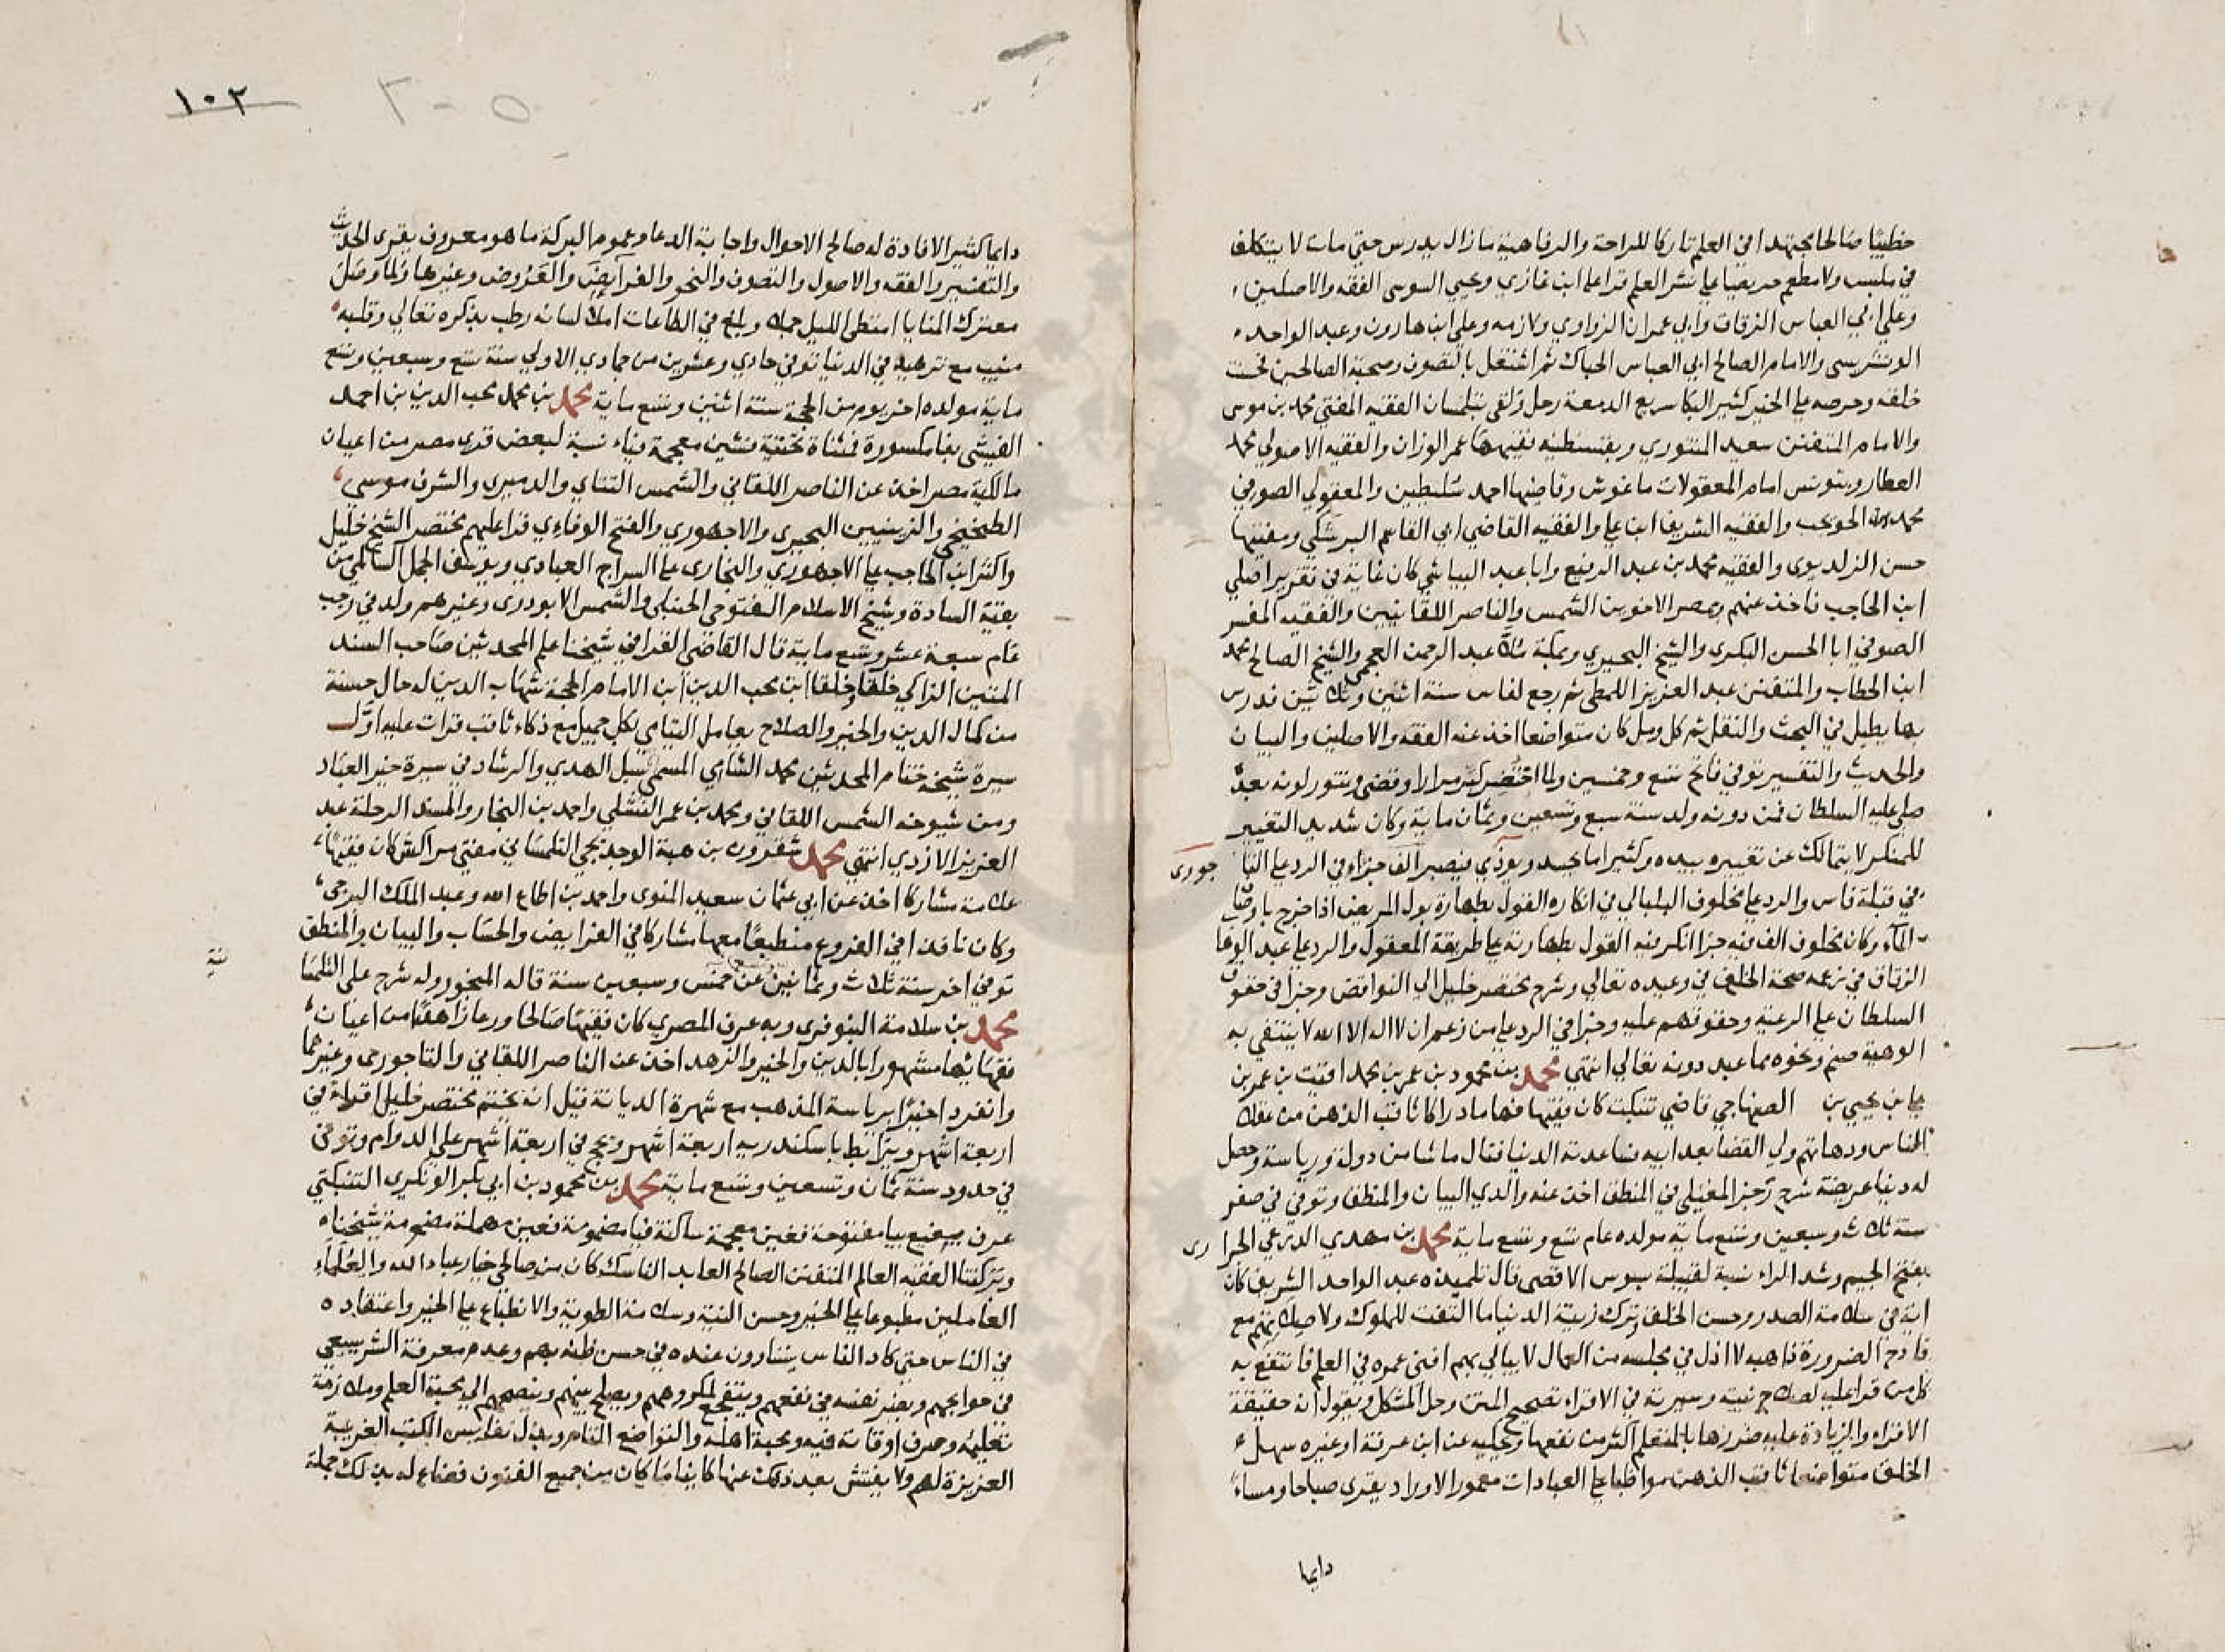 خطيبا صالحا مجتهدا في العلم تاركا للراحة والرفاهية مازال يدرس حتي مات لا يتكلف
في ملبس ولا مطعم حريصا علي نشر العلم قرا علي ابن غازي ويحيي السوسي الفقه والاصلين
وعلي ابي العباس الزقاق وابي عمران الزواوي ولازمه وعلي ابن هارون وعبد الواحد
الونشريسي والامام الصالح ابي العباس الحباك ثم اشتغل بالتصوف وصحبة الصالحين فحسنت
خلقه وحرصه علي الخير كثير البكا سريع الدمعة رحل ولقي بتلمسان الفقيه المفتي محمد بن موسي
والامام المتفنن سعيد المنوري وبقسنطينه فقيهها عمر الوزان والفقيه الاصولي محمد
العطار وبتونس امام المعقولات ماغوش وقاضيها احمد سليطين والمعقولي الصوفي
محمد الحويحب والفقيه الشريف ابن علي والفقيه القاضي ابي القاسم البرشكي ومفتيها
حسن الزلديوي والفقيه محمد بن عبد الرفيع وابا عبد البياشي كان غاية في تقرير اصلي
ابن الحاجب فاخذ عنهم وبمصر الاخوين الشمس والناصر اللقانيين والفقيه المفسر
الصوفي ابا الحسن البكري والشيخ البحيري وبمكة عبد الرحمن العجمي والشيخ الصالح محمد
ابن الحطاب والمتفنن عبد العزيز اللمطي ثم رجع لفاس سنة اثنين وثلاثين فدرس
بها يطيل في البحث والنقل ثم كل ومل كان متواضعا اخذ عنه الفقه والاصلين والبيان
والحديث والتفسير توفي فاتح تسع وخمسين ولما احتضر كبر مرارا وقضي وتنور لونه بعد
صلي عليه السلطان فمن دونه ولد سنة سبع وتسعين وثمان ماية وكان شديد التغيير
للمنكر لا يتمالك عن تغييره بيده وكثيرا ما يحسد ويوذي فيصبر الف جزاء في الرد علي التا جوري
في قبلة فاس والرد علي مخلوف البلبالي في انكاره القول بطهارة بول المريض اذا خرج باوصاف
الماء وكان مخلوف الف فيه جزا انكر فيه القول بطهارته علي طريقة المعقول والرد علي عبد الوهاب
الزقاق في زعمه صحة الخلف في وعيده تعالي وشرح مختصر خليل الي النواقض وجزا في حقوق
السلطان علي الرعية وحقوقهم عليه وجزا في الرد علي من زعم ان لا اله الا الله لا ينتفي به
الوهية صنم ونحوه مما عبد دونه تعالي انتهي محمد بن محمود بن عمر بن محمد اقيت بن عمر بن
علي بن يحيي بن الصنهاجي قاضي تنبكت كان فقيها فهاما دراكا ثاقب الذهن من عقلا
الناس ودهاتهم ولي القضا بعد ابيه فساعدته الدنيا فنال ما شا من دولة ورياسة وحصل
له دنيا عريضة شرح رجز المغيلي في المنطق اخذ عنه والدي البيان والمنطق وتوفي في صفر
سنة ثلاث وسبعين وتسع ماية مولده عام تسع وتسع ماية محمد بن مهدي الدرعي الجرا ري
بفتح الجيم وشد الراء نسبة لقبيلة بسوس الاقصي قال تلميذه عبد الواحد الشريف كان
اية في سلامة الصدر وحسن الخلق وترك زينة الدنيا ما التفت للملوك ولا صلاتهم مع
فادح الضرورة ذاهبه لا اذل في مجلسه من العمال لا يبالي بهم افني عمره في العلم فانتفع به
كل من قرا عليه لصلاح نيته وسيرته في الاقراء تصحيح المتن وحل المشكل ويقول انه حقيقة
الاقراء والزيادة عليه ضررها بالمتعلم اكثر من نفعها ويحكيه عن ابن عرفة او غيره سهل
الخلق متواضعا ثاقب الذهن مواظبا علي العبادات معمور الاوراد يقري صباحا ومساء
دايما
١٠٢
دايما كثير الافادة له صالح الاحوال واجابة الدعا وعموم البركة ما هو معروف يقري الحديث
والتفسير والفقه والاصول والتصوف والنحو والفرايض والعروض وغيرها ولما وصل
معترك المنايا امتطي الليل جملا وبلغ في الطاعات املا لسانه رطب بذكره تعالي وقلبه
منيب مع تزهيد في الدنيا توفي حادي وعشرين من جمادي الاولي سنة تسع وسبعين وتسع
ماية مولده اخر يوم من الحجة سنة اثنين وتسع ماية محمد بن محمد محب الدين بن احمد
الفيشي بفا مكسورة فمثناة تحتية فشين معجمة فياء نسبة لبعض قري مصر من اعيان
مالكية مصر اخذ عن الناصر اللقاني والشمس التتاي والدميري والشرف موسي
الطخيخي والزينيين البحيري والاجهوري والفتح الوفاءي قرا عليهم مختصر الشيخ خليل
واكثر ابن الحاجب علي الاجهوري والبخاري علي السراج العبادي ويوسف الجمال السالمي من
بقية السادة وشيخ الاسلام الفتوحي الحنبلي والشمس الابودري وغيرهم ولد في رجب
عام سبعة عشر وتسع ماية قال القاضي القرافي شيخنا علم المحدثين صاحب السند
المتين الزاكي خلقا وخلقا ابن محب الدين ابن الامام الحجة شهاب الدين له حال حسنة
من كمال الدين والخير والصلاح يعامل اليتامي بكل جميل مع ذكاء ثاقب قرات عليه اول
سيرة شيخه ختام المحدثين محمد الشامي المسمي سبل الهدي والرشاد في سيرة خير العباد
ومن شيوخه الشمس اللقاني ومحمد بن عمر التتلي واحمد بن النجار والمسند الرحلة عبد
العزيز الازدي انتهي محمد شقرون بن هبة الوجديجي التلمساني مفتي مراكش كان فقيها
علامة مشاركا اخذ عن ابي عثمان سعيد المنوي واحمد بن اطاع الله وعبد الملك البرجي
وكان نافذا في الفروع منطبعا معها مشاركا في الفرايض والحساب والبيان والمنطق
توفي اخر سنة ثلاث وثمانين عن خمس وسبعين سنة قاله المنجور وله شرح علي التلمسا نية
محمد بن سلامة البنوفري وبه عرف المصري كان فقيها صالحا ورعا زاهدا من اعيان
فقهائها مشهورا بالدين والخير والزهد اخذ عن الناصر اللقاني والتاجوري وغيرهما
وانفرد اخيرا برياسة المذهب مع شهرة الديانة قيل انه يختم مختصر خليل اقراء في
اربعة اشهر ويرابط باسكندريه اربعة اشهر ويحج في اربعة اشهر علي الدوام وتوفي
في حدود سنة ثمان وتسعين وتسع ماية محمد بن محمود بن ابي بكر الونكري التنبكتي
عرف ببغيع بيا مفتوحة فغين معجمة ساكنة فيا مضمومة فعين مهملة مضمومة شيخنا
وبركتنا الفقيه العالم المتفنن الصالح العابد الناسك كان من صالحي خيار عباد الله والعلماء
العاملين مطبوعا علي الخير وحسن النية وسلامة الطوية والانطباع علي الخير واعتقاده
في الناس حتي كاد الناس يتساوون عنده في حسن ظنه بهم وعدم معرفة الشر يسعي
في حوايجهم ويضر نفسه في نفعهم ويتفجع لمكروههم ويصلح بينهم وينصحهم الي محبة العلم وملازمة
تعليمه وصرف اوقاته فيه ومحبة اهله والتواضع التام وبذل نفايس الكتب الغريبة
العزيزة لهم ولا يفتش بعد ذلك عنها كاينا ما كان من جميع الفنون فضاع له بذلك جملة